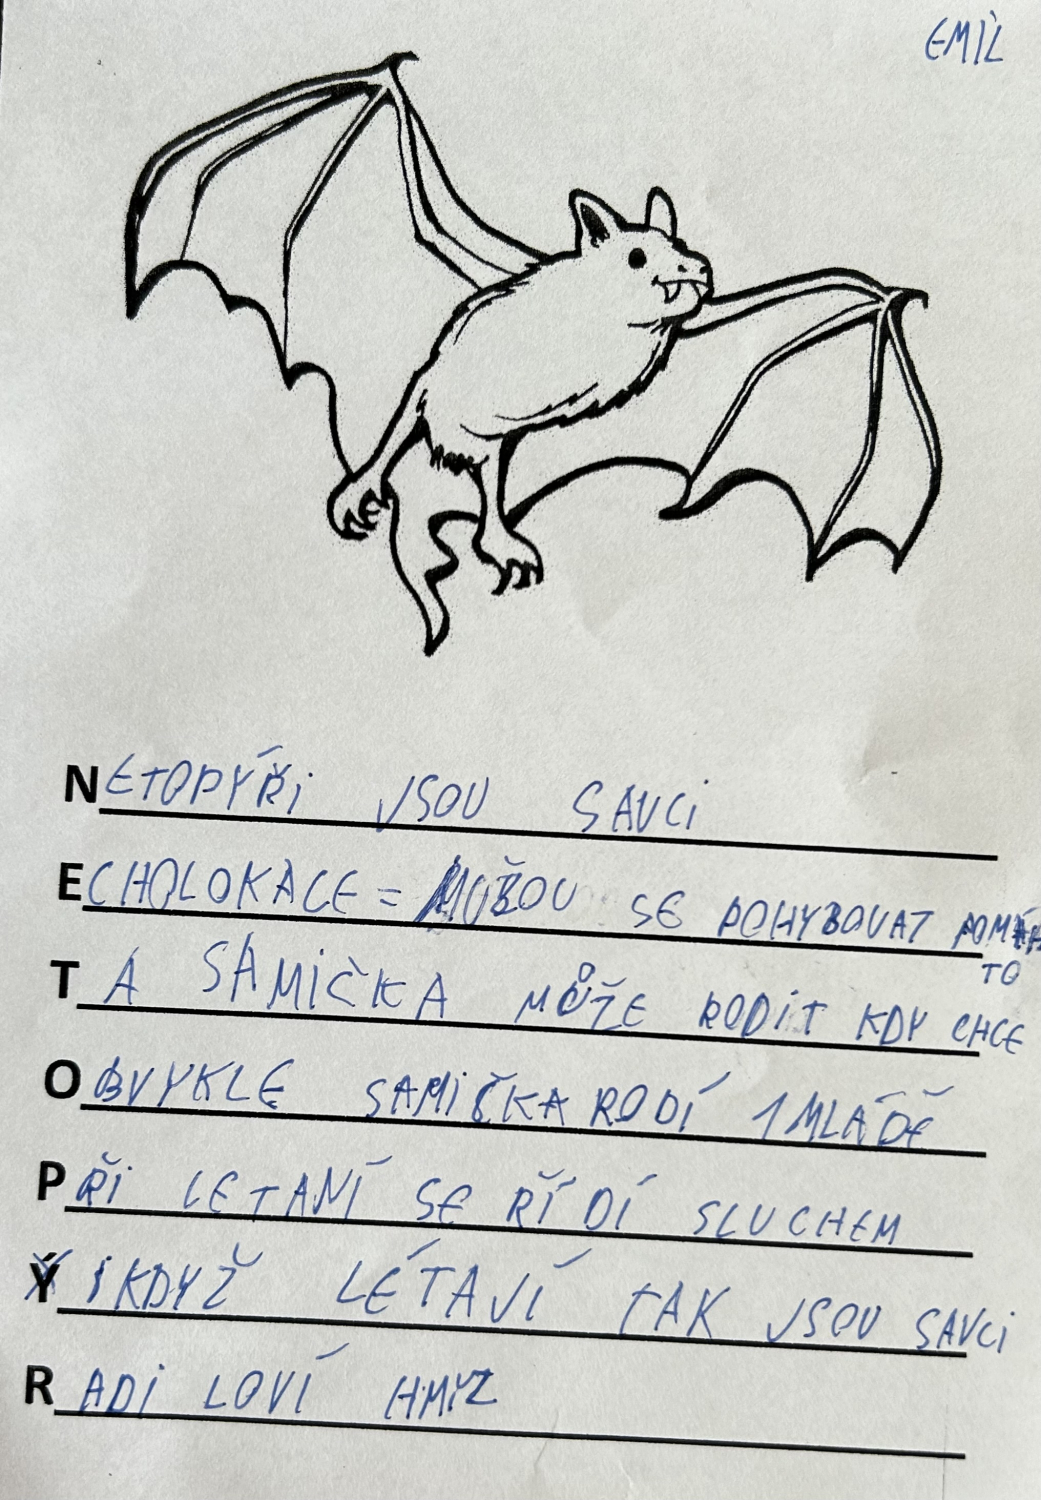 EMIL
NETOPÝŘI JSOU SAVCI
ECHOLOKACE = MŮŽOU SE POHYBOVAT POMÁH
TO
TA SAMIČKA MŮŽE RODIT KDY CHCE
OBVYKLE SAMIČKA RODÍ 1 MLÁDĚ
PŘI LETANÍ SE ŘÍDÍ SLUCHEM
Ý I KDYŽ LÉTAJÍ TAK JSOU SAVCI
RADI LOVÍ HMYZ